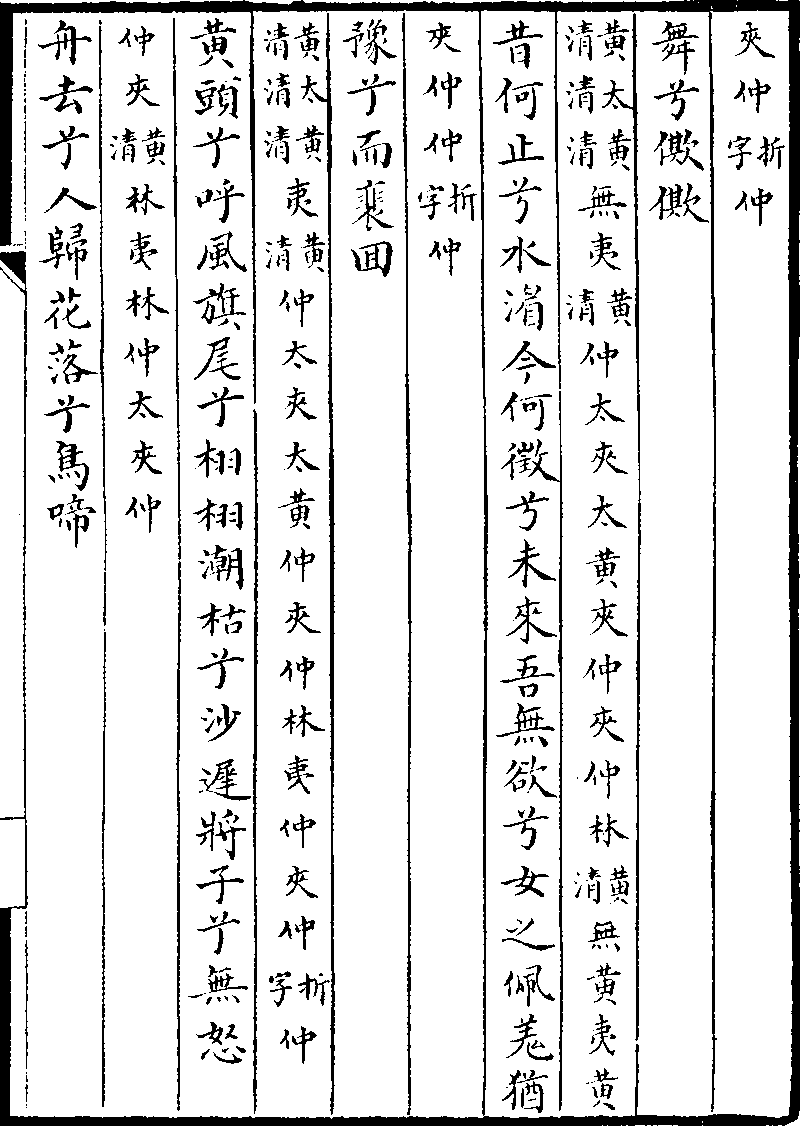 夾仲折字仲
舞兮僛僛
黃清太清黃清無夷黃清仲太夾太黃夾仲夾仲林黃清無黃夷黃
昔何止兮水湄今何徵兮未來吾無欲兮女之佩羌猶
夾仲仲折字仲
豫兮而裵囬
黃清太清黃清夷黃清仲太夾太黃仲夾仲林夷仲夾仲折字仲
黃頭兮呼風旗尾兮栩栩潮枯兮沙遲將子兮無怒
仲夾黃清林夷林仲太夾仲
舟去兮人歸花落兮鳥啼